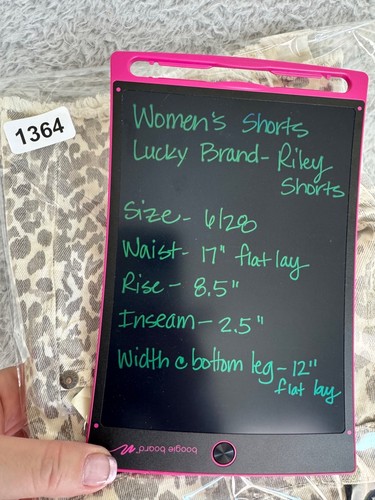 1364
Women's Shorts
Lucky Brand- Riley
Shorts
Size- 6/28
Waist- 17" flat lay
Rise- 8.5"
Inseam- 2.5"
Width @ bottom leg- 12"
flat lay
boogie board